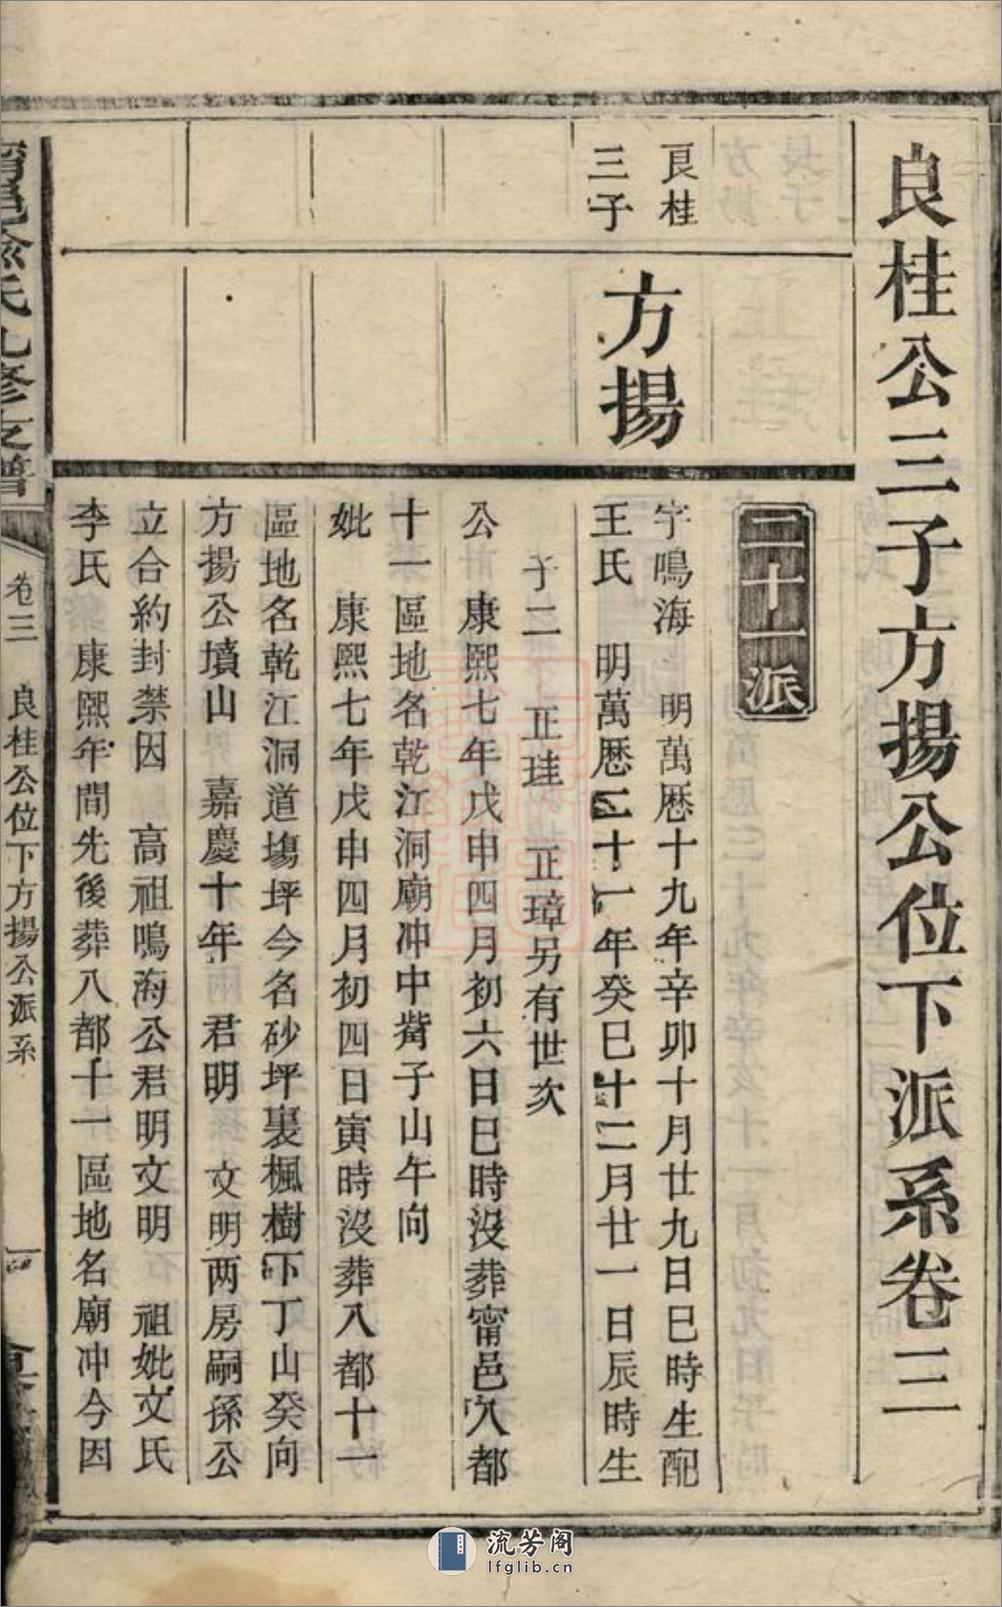 良桂公三子方揚公位下派系卷三
良桂
三子
方揚
二十一派
字鳴海　明萬厯十九年辛卯十月廿九日巳時生配
王氏　明萬厯二十一年癸巳十二月廿一日辰時生
子二　正珪　正璋另有世次
公　康熙七年戊申四月初六日巳時沒葬甯邑八都
十一區地名乾江洞廟冲中觜子山午向
妣　康熙七年戊申四月初四日寅時沒葬八都十一
區地名乾江洞道塲坪今名砂坪裏楓樹下丁山癸向
方揚公墳山　嘉慶十年　君明　文明两房嗣孫公
立合約封禁因　高祖鳴海公君明文明　祖妣文氏
李氏　康熙年間先後葬八都十一區地名廟冲今因
卷三　良桂公位下方揚公派系
流芳阁
lfglib.cn